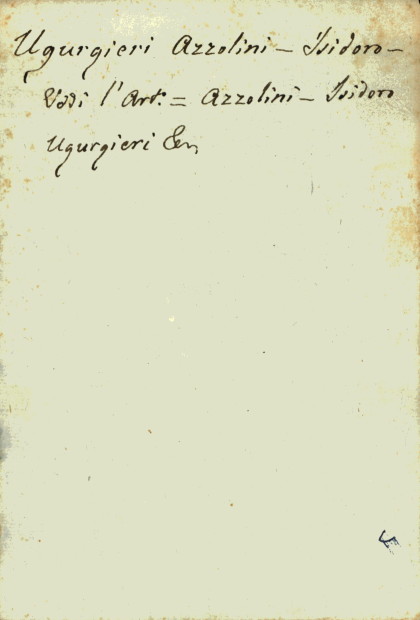 Ugurgieri Azzolini - Isidoro -
Vedi l'Art: = Azzolini - Isidoro
Ugurgieri &c,